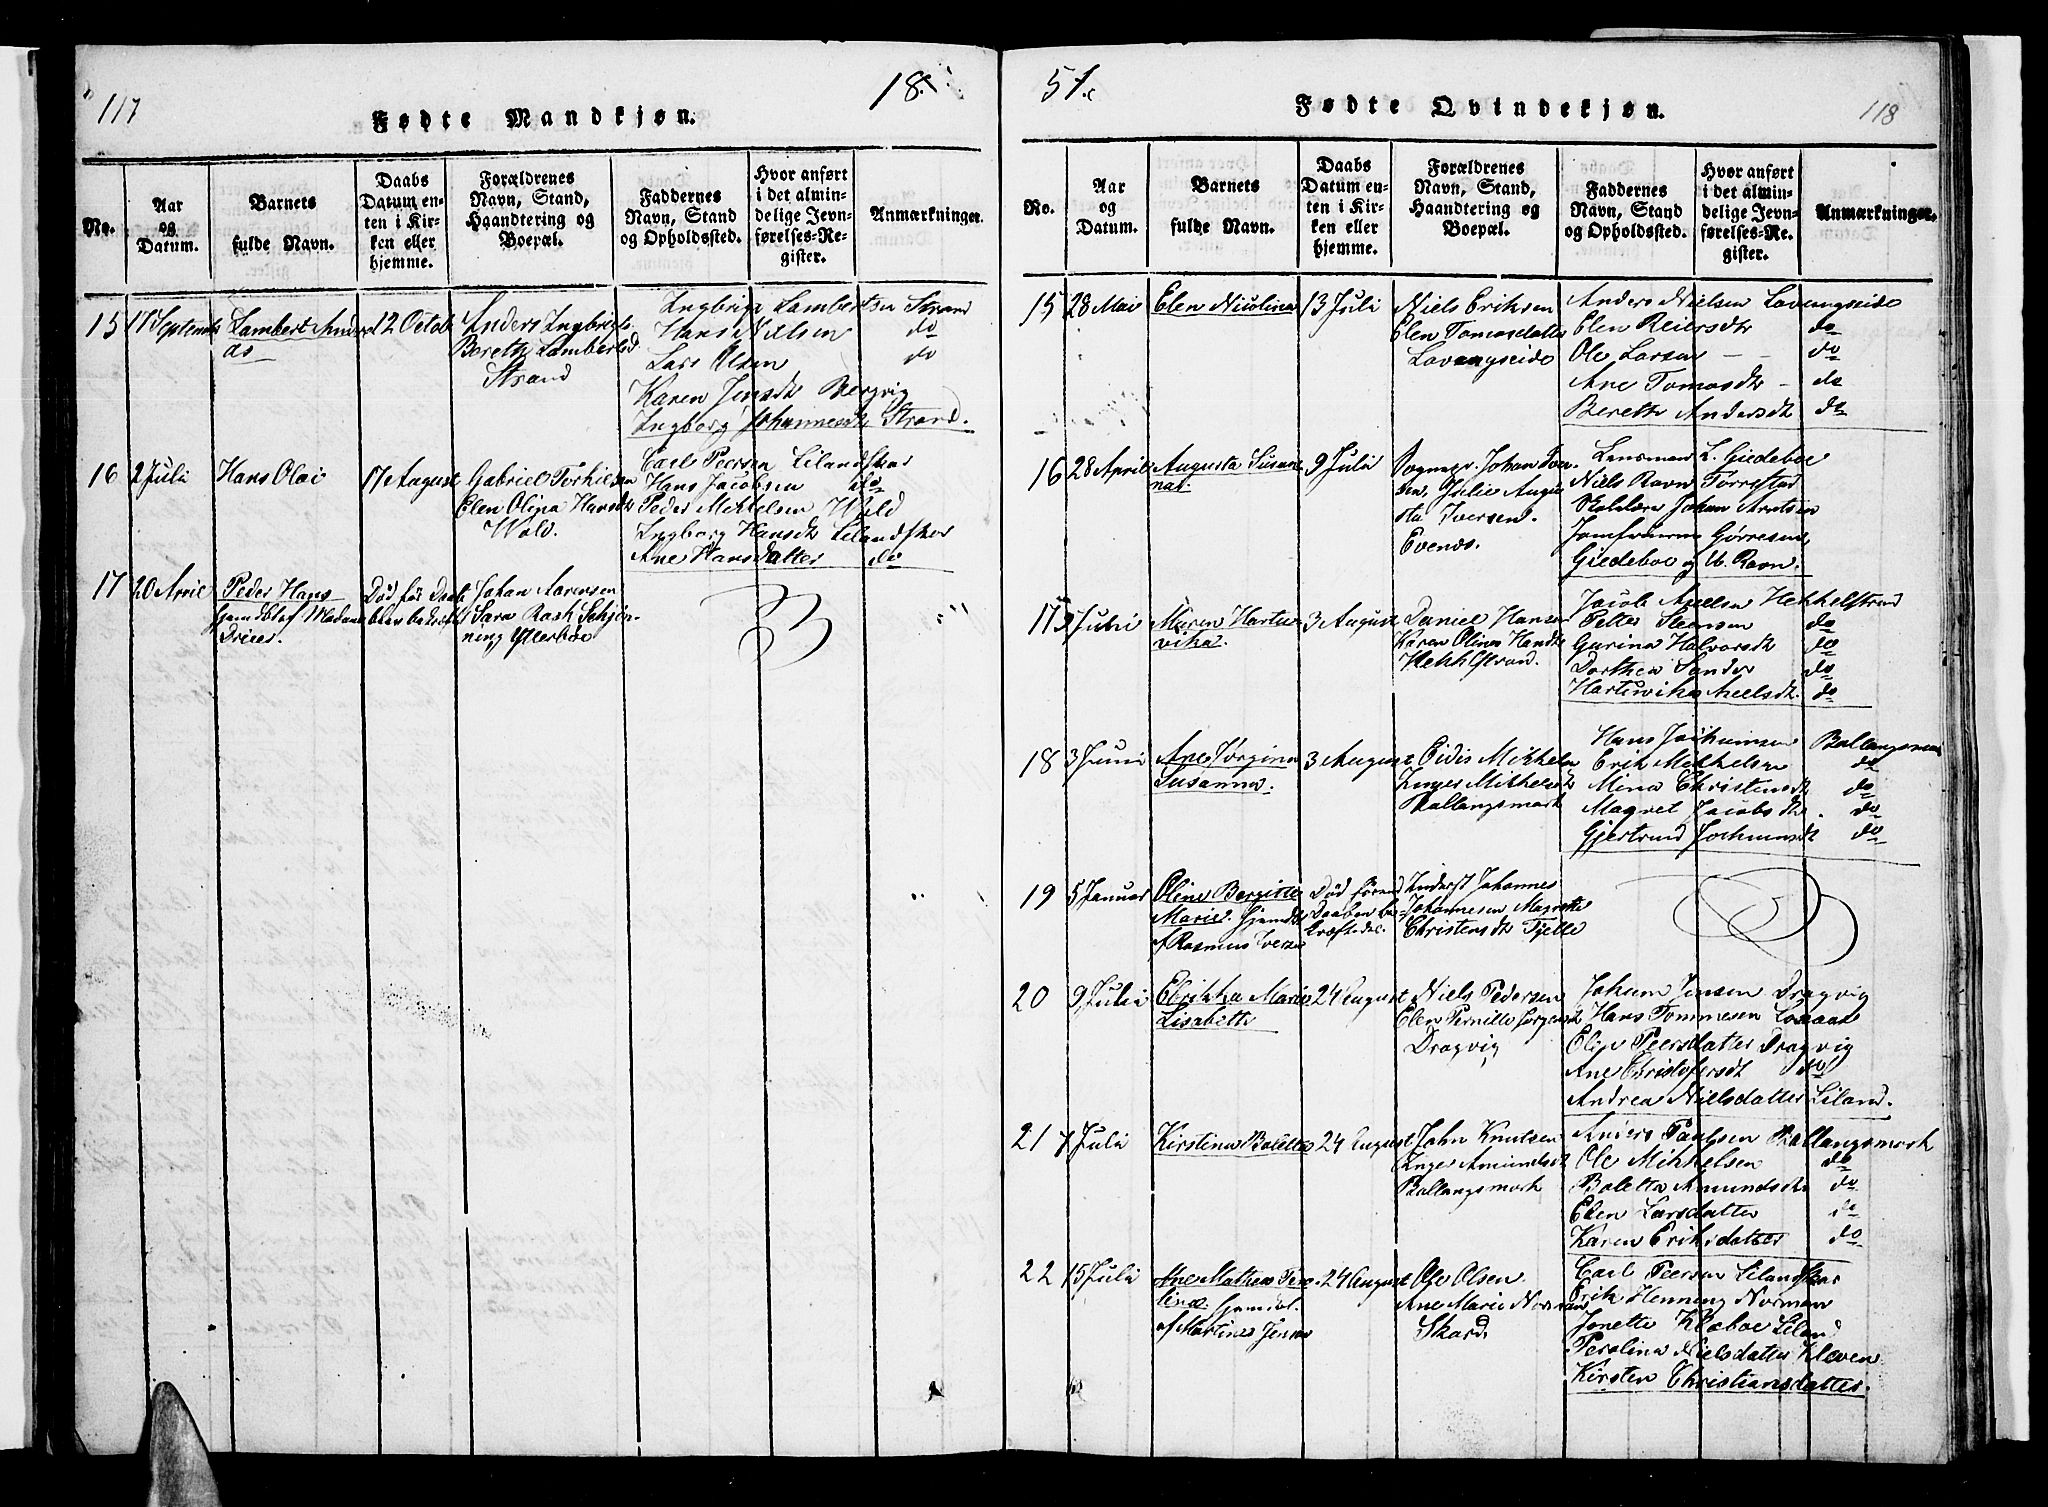 117
18
Fødte Mandkjøn.
No.
Aar
og
Datum.
Barnets
fulde Navn.
Daabs
Datum en-
ten i Kir-
ken eller
hjemme.
Forældrenes
Navn, Stand,
Haandtering og
Boepæl.
Faddernes
Navn, Stand
og Opholdssted.
Hvor anført
i det almin-
delige Jevn-
førelses-Re-
gister.
Anmærkninger.
15 17 Septemb Lambert Andre
as
12 Octob
Anders Ingbrigts
Bereth Lambertsd
Strand
Ingbrigt Lambertsen Strand
Hans Nilsen do
Lars Olsen do
Karen Jensdt Bergvig
Ingborg Johannesdt Strand.
16 2 Juli Hans Olai 17 August
Gabriel Torkilsen
Elen Olina Hansdt
Wold.
Carl Peersen Lilandskar
Hans Jacobsen do
Peder Mikkelsen Wold
Ingborg Hansdt Lilandskar
Ane Hansdatter do
17 20 April Peder Hans
hjemdøbt af Madam
Dreier.
Død før Daab
blev bekræft
Johan Aarensen
Sara Rask Schjøn-
ning Ytterbøe
51
Fødte Qvindekjøn.
118
No.
Aar
og
Datum.
Barnets
fulde Navn.
Daabs
Datum en-
ten i Kir-
ken eller
hjemme.
Forældrenes
Navn, Stand,
Haandtering og
Boepæl.
Faddernes
Navn, Stand
og Opholdssted.
Hvor anført
i det almin-
delige Jevn-
førelses-Re-
gister.
Anmærkninger.
15 28 Mai Elen Nicolina 13 Juli
Niels Eriksen
Elen Tomasdatter
Lavangseide
Anders Nielsen Lavangseide
Elen Reiersdtr do
Ole Larsen do
Ane Tomasdtr do
Berette Andersdt do
16 28 April Augusta Susan-
na
9 Juli
Sognepr. Johan Iver-
sen, Julie Augu
sta Iversen.
Evenes.
Lensmand L. Giedeboe
Niels Ravn Tørrestad
Johan Arntsen
Jomfruerne Gørresen
Giedeboe og U. Ravn.
17 3 Juli Maren Hartu
vika.
3 August
Daniel Hansen
Karen Olina Hansdt
Hekkelstrand.
Jacob Axelsen Hekkelstrand
Petter Steensen do
Gurina Halvorsdt do
Dorthea Sander do
Hartuvika Axelsdt. do
18 3 Juni Ane Jørgina
Susanna.
3 August
Eidis Mikkelsen
Inger Mikkelsdt
Ballangsmark
Hans Jochumsen Ballangsmark
Erik Mikkelsen do
Mina Christensdt do
Magret Jacobsdt. do
Gjertrud Jochumsdt do
19 5 Januar Oline Bergitte
Marie. hjemdt
af Rasmus Iversen
Død førend
Daaben be-
kræftedes.
Inderst Johannes
Johannesen Magrete
Christensdt Tjelle
20 9 Juli Erikka Marie
Lisabette
24 August
Niels Pedersen
Elen Pernille Jørgensdt
Dragvig
Johan Jensen Dragvig
Hans Tommesen
Elen Peersdatter Dragvig
Ane Christofersdt do
Andrea Nielsdatter Liland.
21 7 Juli Kirstina Bolette 24 August
John Knutsen
Inger Amundsdt
Ballangsmark
Anders Paulsen Ballangsmark
Ole Mikkelsen do
Boletta Amundsdt do
Elen Larsdatter do
Karen Eriksdatter do
22 15 Juli Ane Mathea Pero
lina. hjemdøbt.
af Martines Jensen
24 August
Ole Olsen
Ane Marie Norman
Skard.
Carl Peersen Lilandskar
Erik Henning Norman
Jonette Klæboe Liland
Perolina Nielsdatter Kleven
Kirsten Christiansdatter.